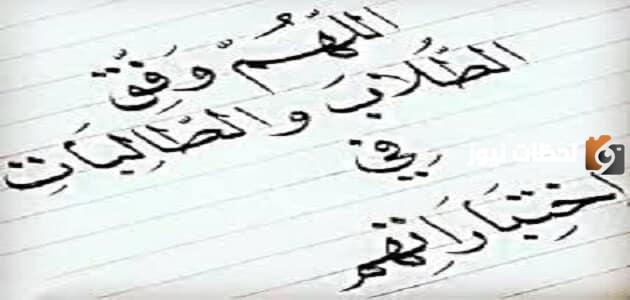 اللَّهُمَّ وَفِّقْ
الطُّلَابَ والطَّالِبَاتِ
فِي
اخْتِبَارَاتِهِمْ
لحظات نيوز